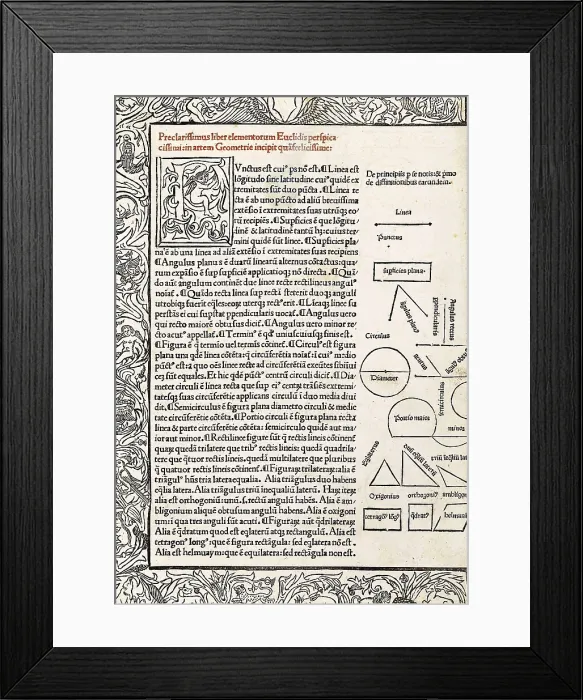 Preclarissimus liber elementorum Euclidis perspica
cissimi: in artem Geometrie incipit quãfoelicissime:
Vnctus est cuiꝰ ps nõ est. ¶ Linea est
lõgitudo sine latitudine cuiꝰ quidẽ ex
tremitates sũt duo pũcta. ¶ Linea re
cta ẽ ab uno pũcto ad aliũ breuissima
extẽsio ĩ extremitates suas utrũqꝫ eo
rũ recipiẽs. ¶ Supficies ẽ que lõgitu
dinẽ & latitudinẽ tantũ hꝫ: cuius ter
mini quidẽ sũt linee. ¶ Supficies pla
na ẽ ab una linea ad aliã extẽsio ĩ extremitates suas recipiens
¶ Angulus planus ẽ duarũ linearũ alternus cõtactus: qua
rum expãsio ẽ sup supficiẽ applicatioqꝫ nõ directa. ¶ Quã
do aũt angulum continẽt due linee recte rectilineus anguls
noiaĩ. ¶ Qũdo recta linea sup rectã steterit duoqꝫ anguli
utrobiqꝫ fuerit eq̃les: eoꝝ uterqꝫ rectꝰ erit.
¶ Lineaqꝫ linee su
perstãs ei cui supstat ppendicularis uocaĩ. ¶ Angulus uero
qui recto maior ẽ obtusus diciĩ. ¶ Angulus uero minor re
cto acutꝰ appellaĩ. ¶ Terminꝰ ẽ qđ uniuscuiusqꝫ finis est.
¶ Figura ẽ q̃ termino uel termis cõtineĩ. ¶ Circulꝰ est figura
plana una qdẽ linea cõtẽta: q̃ circũferẽtia noiaĩ: ĩ cuiꝰ medio
pũctꝰ est: a quo oẽs linee recte ad circũferẽtiã exeũtes sibiĩui
cẽ sũt equales. Et hic qdẽ pũctꝰ centrũ circuli diciĩ. ¶ Dia
meter circuli ẽ linea recta que sup eiꝰ centrꝫ trãsiẽs extremi
tatesqꝫ suas circũferẽtie applicans circulũ ĩ duo media diui
dit. ¶ Semicirculus ẽ figura plana diametro circuli & medie
tate circũferẽtie cõtẽta. ¶ Portio circuli ẽ figura plana recta
linea & parte circũferẽtie cõtẽta: semicirculo quidẽ aut ma
ior aut minor. ¶ Rectilinee figure sũt q̃ rectis lineis cõtinenĩ
quarꝫ quedã trilatere que tribꝰ rectis lineis: quedã quadrila
tere que q̃tuor rectis lineis. quedã multilatere que pluribus
q̃ quatuor rectis lineis cõtinenĩ. ¶ Figurarꝫ trilaterarꝫ: alia ẽ
triãgulꝰ hñs tria latera equalia. Alia triãgulus duo habens
eq̃lia latera. Alia triãgulus triũ inequaliũ laterũ. Harꝫ iterꝫ
alia est orthogoniũ: unũ. s. rectũ angulũ habẽs. Alia ẽ am
bligonium aliquẽ obtusum angulũ habens. Alia ẽ oxigoni
um: ĩ qua tres anguli sũt acuti. ¶ Figurarꝫ aũt q̃drilaterarꝫ
Alia ẽ q̃dratum quod est equilaterũ atqꝫ rectangulũ. Alia est
tetragonꝰ longꝰ: que ẽ figura rectãgula: sed equilatera nõ est.
Alia est helmuaym: que ẽ equilatera: sed rectãgula non est.
De principiis p se notis: & pmo
de diffinitionibus earundem.
Linea
Punctus
supficies plana.
Circulus
Diameter
Portio maior
semicirculus
minor
Oxigonius
orthogoniꝰ
tetragonꝰ lõgꝰ
q̃dratꝰ